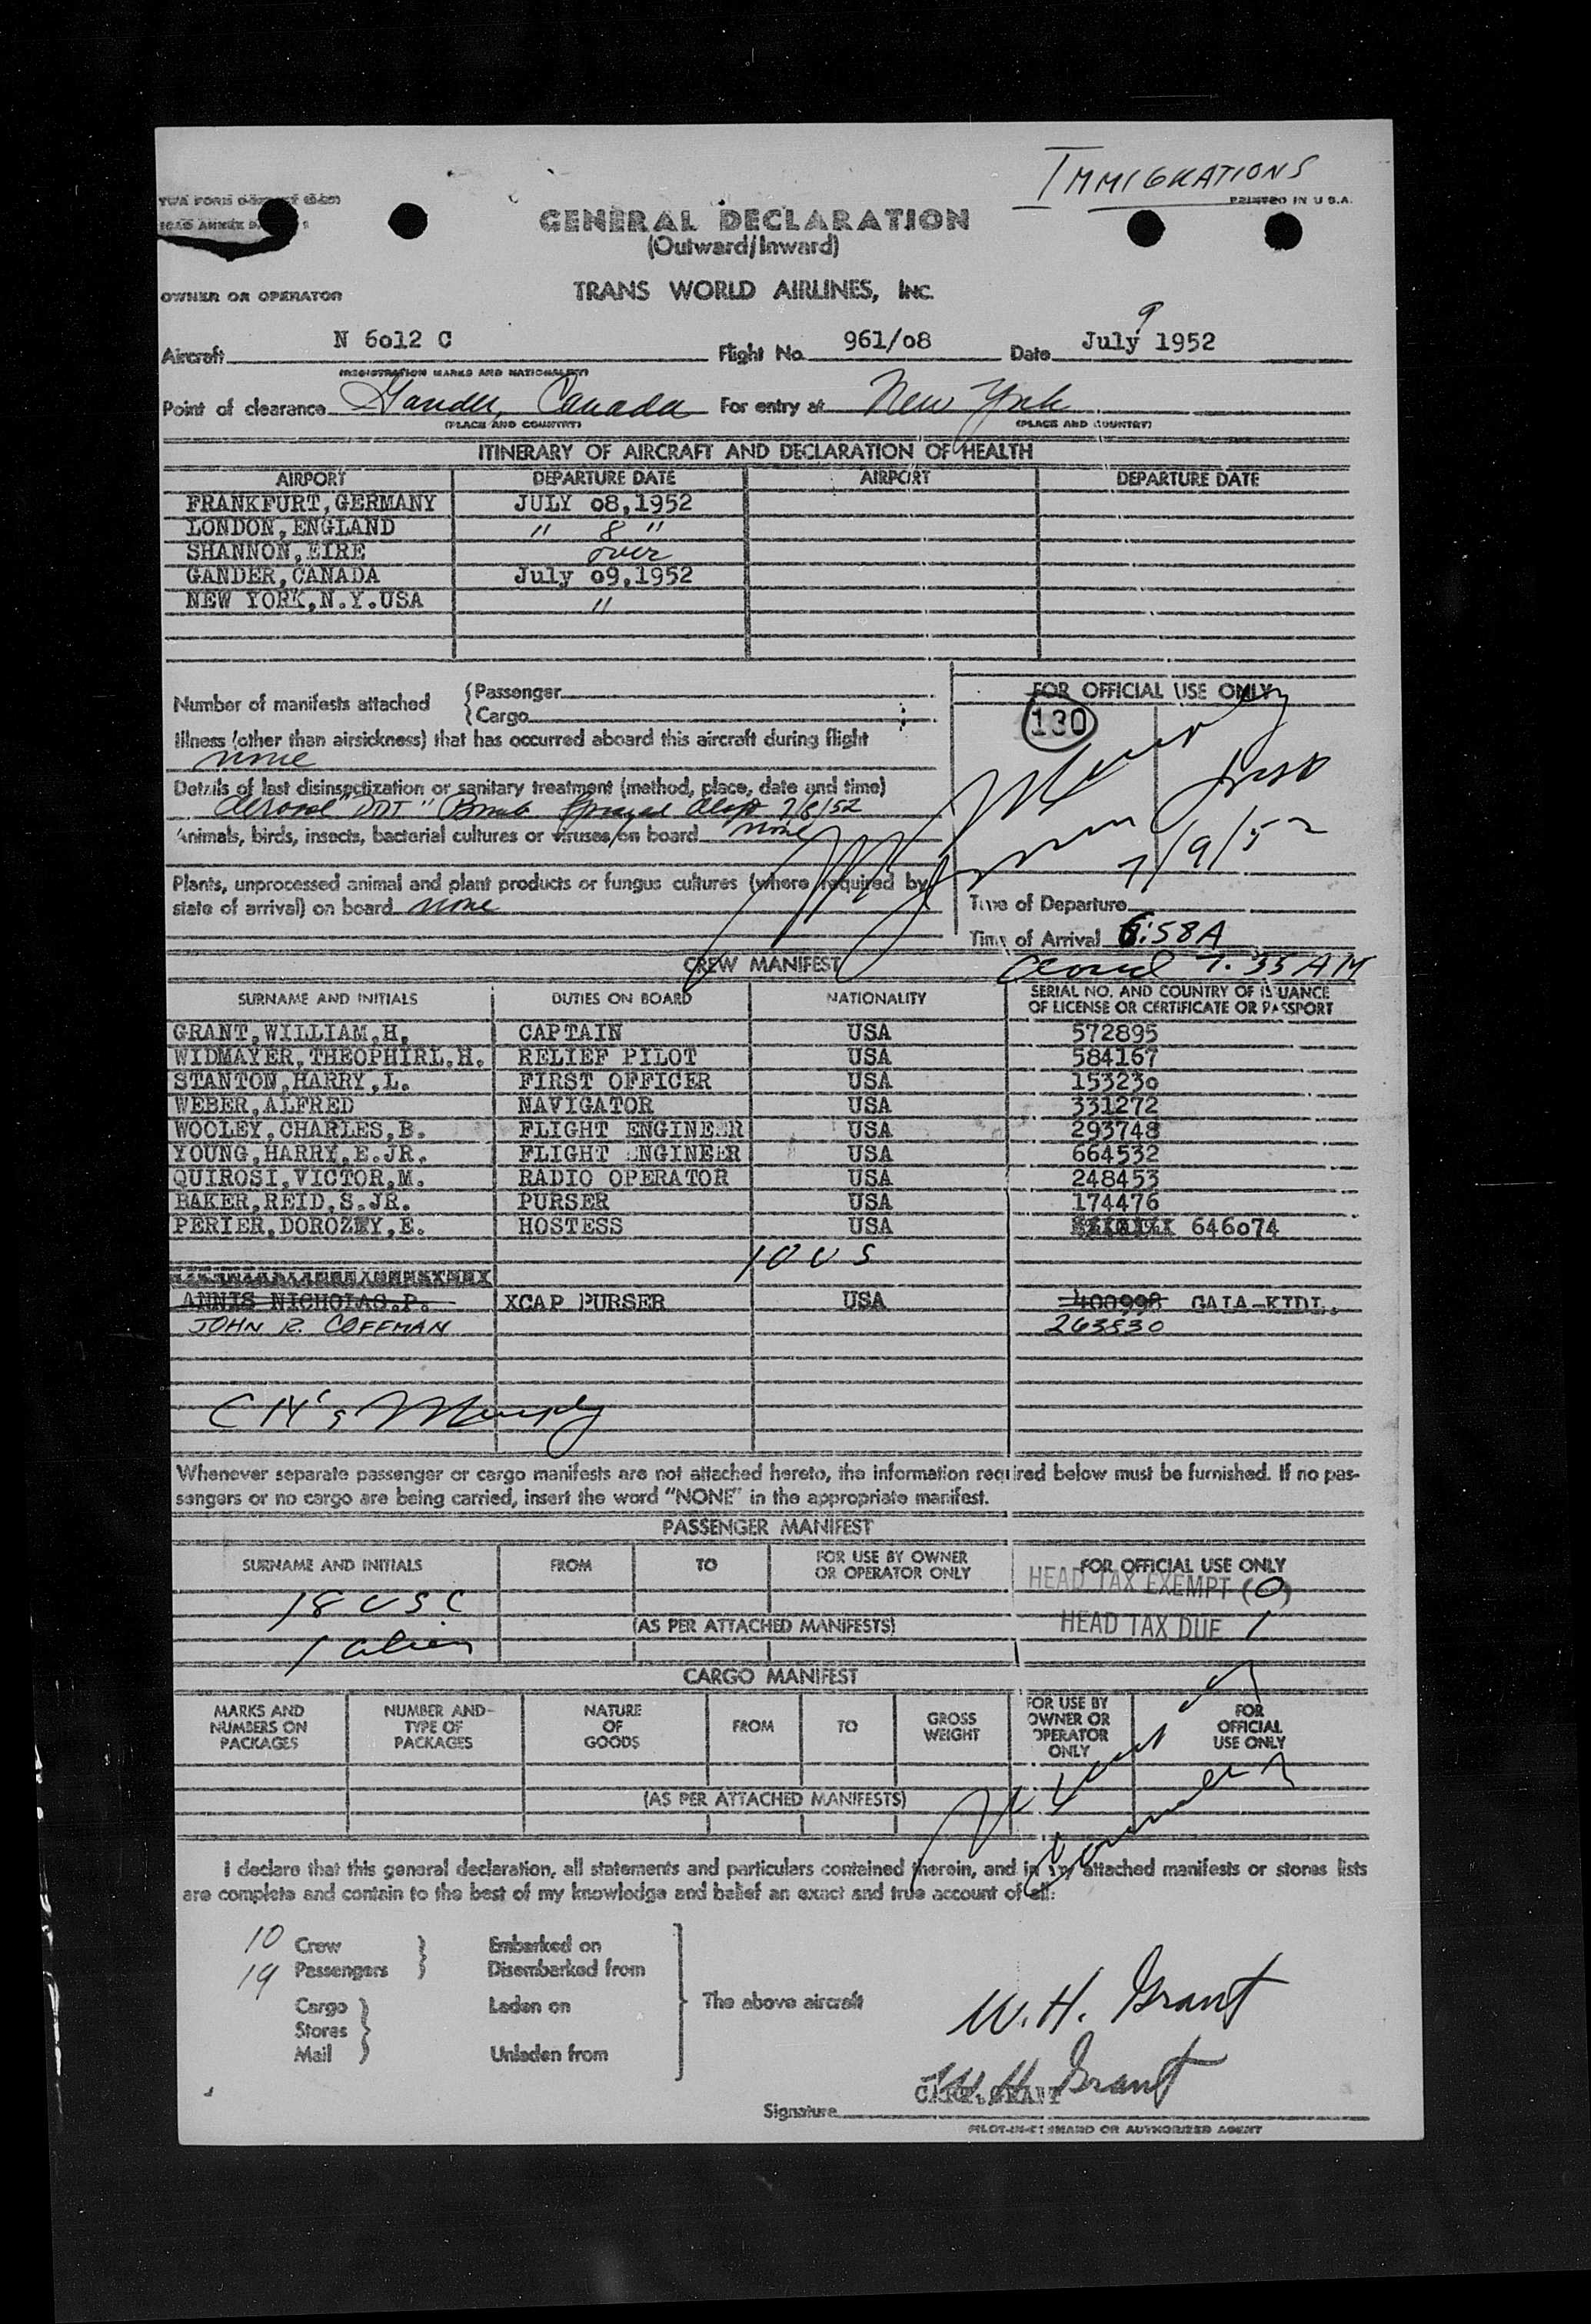 IMMIGRATIONS
PRINTED IN U.S.A.
GENERAL DECLARATION
(Outward/Inward)
OWNER OR OPERATOR TRANS WORLD AIRLINES, INC.
9
Aircraft N 6o12 C Flight No. 961/o8 Date July 1952
(REGISTRATION MARKS AND NATIONALITY)
Point of clearance Gander, Canada For entry at New York
(PLACE AND COUNTRY) (PLACE AND COUNTRY)
ITINERARY OF AIRCRAFT AND DECLARATION OF HEALTH
AIRPORT DEPARTURE DATE AIRPORT DEPARTURE DATE
FRANKFURT,GERMANY JULY o8,1952
LONDON,ENGLAND " 8 "
SHANNON,EIRE over
GANDER,CANADA July o9,1952
NEW YORK,N.Y.USA "
Number of manifests attached { Passenger
{ Cargo
FOR OFFICIAL USE ONLY
130
Illness (other than airsickness) that has occurred aboard this aircraft during flight
none
Details of last disinsectization or sanitary treatment (method, place, date and time)
Aerosol "DDT" Bomb Sprayed 7/8/52
Animals, birds, insects, bacterial cultures or viruses, on board none
7/9/52
Plants, unprocessed animal and plant products or fungus cultures (where required by
state of arrival) on board none
Time of Departure
Time of Arrival 6:58A
CREW MANIFEST 7:35 AM
SURNAME AND INITIALS DUTIES ON BOARD NATIONALITY SERIAL NO. AND COUNTRY OF ISSUANCE
OF LICENSE OR CERTIFICATE OR PASSPORT
GRANT,WILLIAM,H. CAPTAIN USA 572895
WIDMAYER,THEOPHIRL.H. RELIEF PILOT USA 584167
STANTON,HARRY,L. FIRST OFFICER USA 15323o
WEBER,ALFRED NAVIGATOR USA 331272
WOOLEY,CHARLES,B. FLIGHT ENGINEER USA 293748
YOUNG,HARRY,E.JR. FLIGHT ENGINEER USA 664532
QUIROSI,VICTOR,M. RADIO OPERATOR USA 248453
BAKER,REID,S.JR. PURSER USA 174476
PERIER,DOROZHY,E. HOSTESS USA 646o74
10 US
ANNIS NICHOLAS.P. XCAP PURSER USA 400998 GALA-KIDL.
JOHN R. COFFMAN 263830
Whenever separate passenger or cargo manifests are not attached hereto, the information required below must be furnished. If no pas-
sengers or no cargo are being carried, insert the word "NONE" in the appropriate manifest.
PASSENGER MANIFEST
SURNAME AND INITIALS FROM TO FOR USE BY OWNER
OR OPERATOR ONLY FOR OFFICIAL USE ONLY
HEAD TAX EXEMPT (0)
18 USC
(AS PER ATTACHED MANIFESTS) HEAD TAX DUE 1
1 alien
CARGO MANIFEST
MARKS AND
NUMBERS ON
PACKAGES NUMBER AND
TYPE OF
PACKAGES NATURE
OF
GOODS FROM TO GROSS
WEIGHT FOR USE BY
OWNER OR
OPERATOR
ONLY FOR
OFFICIAL
USE ONLY
(AS PER ATTACHED MANIFESTS)
I declare that this general declaration, all statements and particulars contained therein, and in any attached manifests or stores lists
are complete and contain to the best of my knowledge and belief an exact and true account of all:
10 Crew } Embarked on
19 Passengers } Disembarked from
Cargo } Laden on
Stores
Mail } Unladen from
The above aircraft
W. H. Grant
W H Grant
Signature
PILOT-IN-COMMAND OR AUTHORIZED AGENT